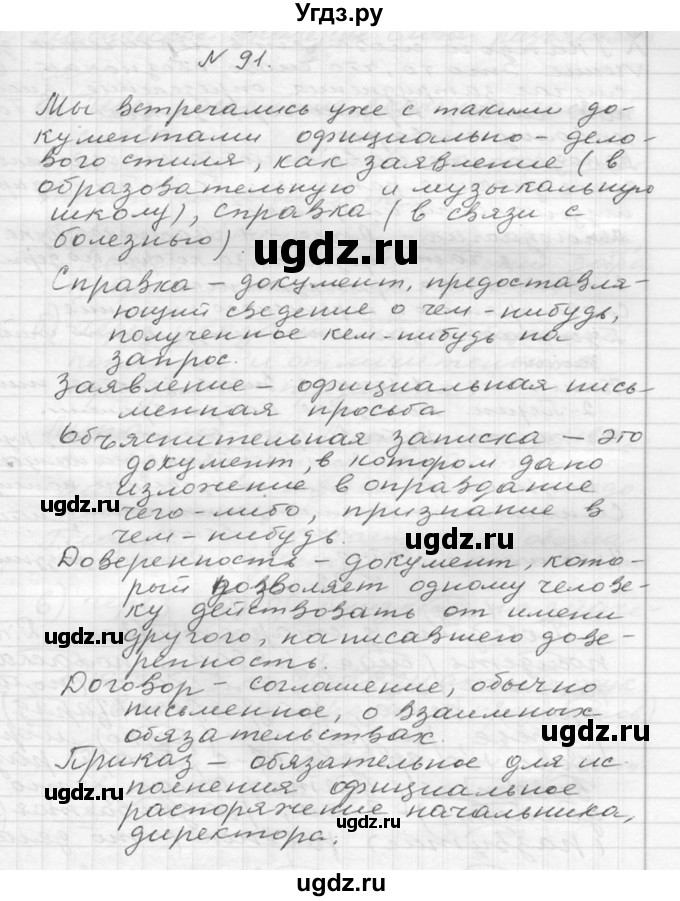 Угдз.ру
N 91.
Мы встречались уже с такими до-
кументами официально-дело-
вого стиля, как заявление (в
образовательную и музыкальную
школу), справка (в связи с
болезнью).
ugdz.ru
Справка – документ, предоставля-
ющий сведение о чем-нибудь,
полученное кем-нибудь на
запрос.
Заявление – официальная пись-
менная просьба
Объяснительная записка – это
документ, в котором дано
изложение в оправдание
ugdz.ru
чего-либо, признание в
чем-нибудь.
ugdz.ru
Доверенность – документ, кото-
рый позволяет одному челове-
ку действовать от имени
ugdz.ru
другого, написавшего дове-
ренность.
Договор – соглашение, обычно
письменное, о взаимных
обязательствах.
ugdz.ru
Приказ – обязательное для ис-
полнения официальное
ugdz.ru
распоряжение начальника,
директора;
ugdz.ru
ugdz.ru